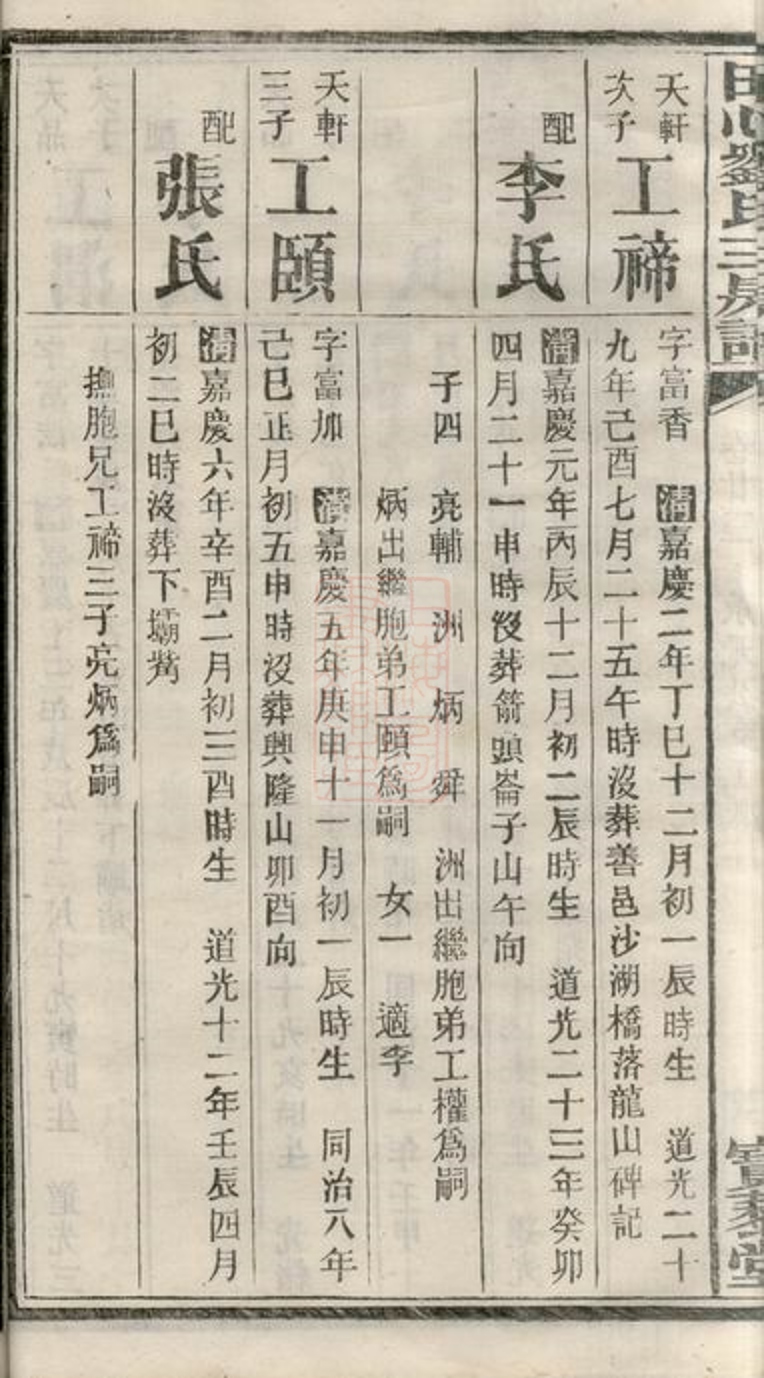 劉氏三房譜
天軒次子 工禘
字富香 清嘉慶二年丁巳十二月初一辰時生 道光二十
九年己酉七月二十五午時沒葬善邑沙湖橋落龍山碑記
配 李氏
清嘉慶元年丙辰十二月初二辰時生 道光二十三年癸卯
四月二十一申時沒葬箭頭崙子山午向
子四 亮輔 洲 炳 舜 洲出繼胞弟工權為嗣
炳出繼胞弟工頤為嗣 女一 適李
天軒三子 工頤
字富加 清嘉慶五年庚申十一月初一辰時生 同治八年
己巳正月初五申時沒葬興隆山卯酉向
配 張氏
清嘉慶六年辛酉二月初三酉時生 道光十二年壬辰四月
初二巳時沒葬下壩塝
撫胞兄工禘三子亮炳為嗣